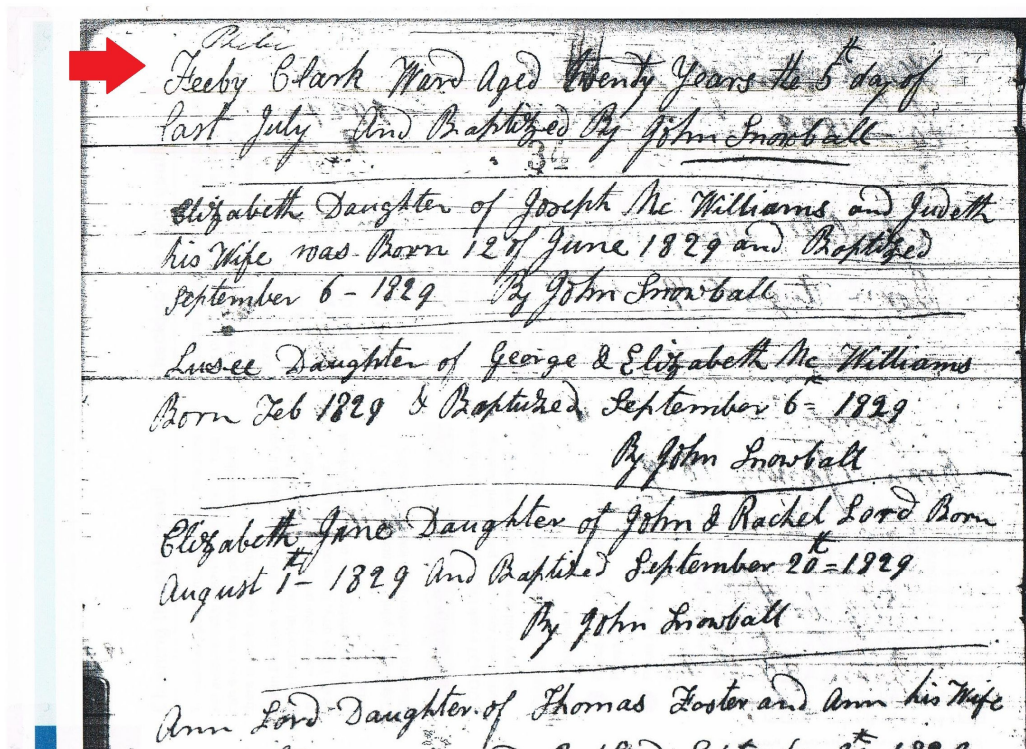 Phebe
Feeby Clark Ward Aged twenty Years the 5th day of
last July And Baptized By John Snowball
Elizabeth Daughter of Joseph Mc Williams and Judeth
his Wife was Born 12 of June 1829 and Baptized
September 6 - 1829 By John Snowball
Lusee Daughter of George & Elizabeth Mc Williams
Born Feb 1829 & Baptized September 6th 1829
By John Snowball
Elizabeth Jane Daughter of John & Rachel Lord Born
August 1th - 1829 And Baptized September 20th = 1829
By John Snowball
Ann Lord Daughter of Thomas Foster and Ann his Wife